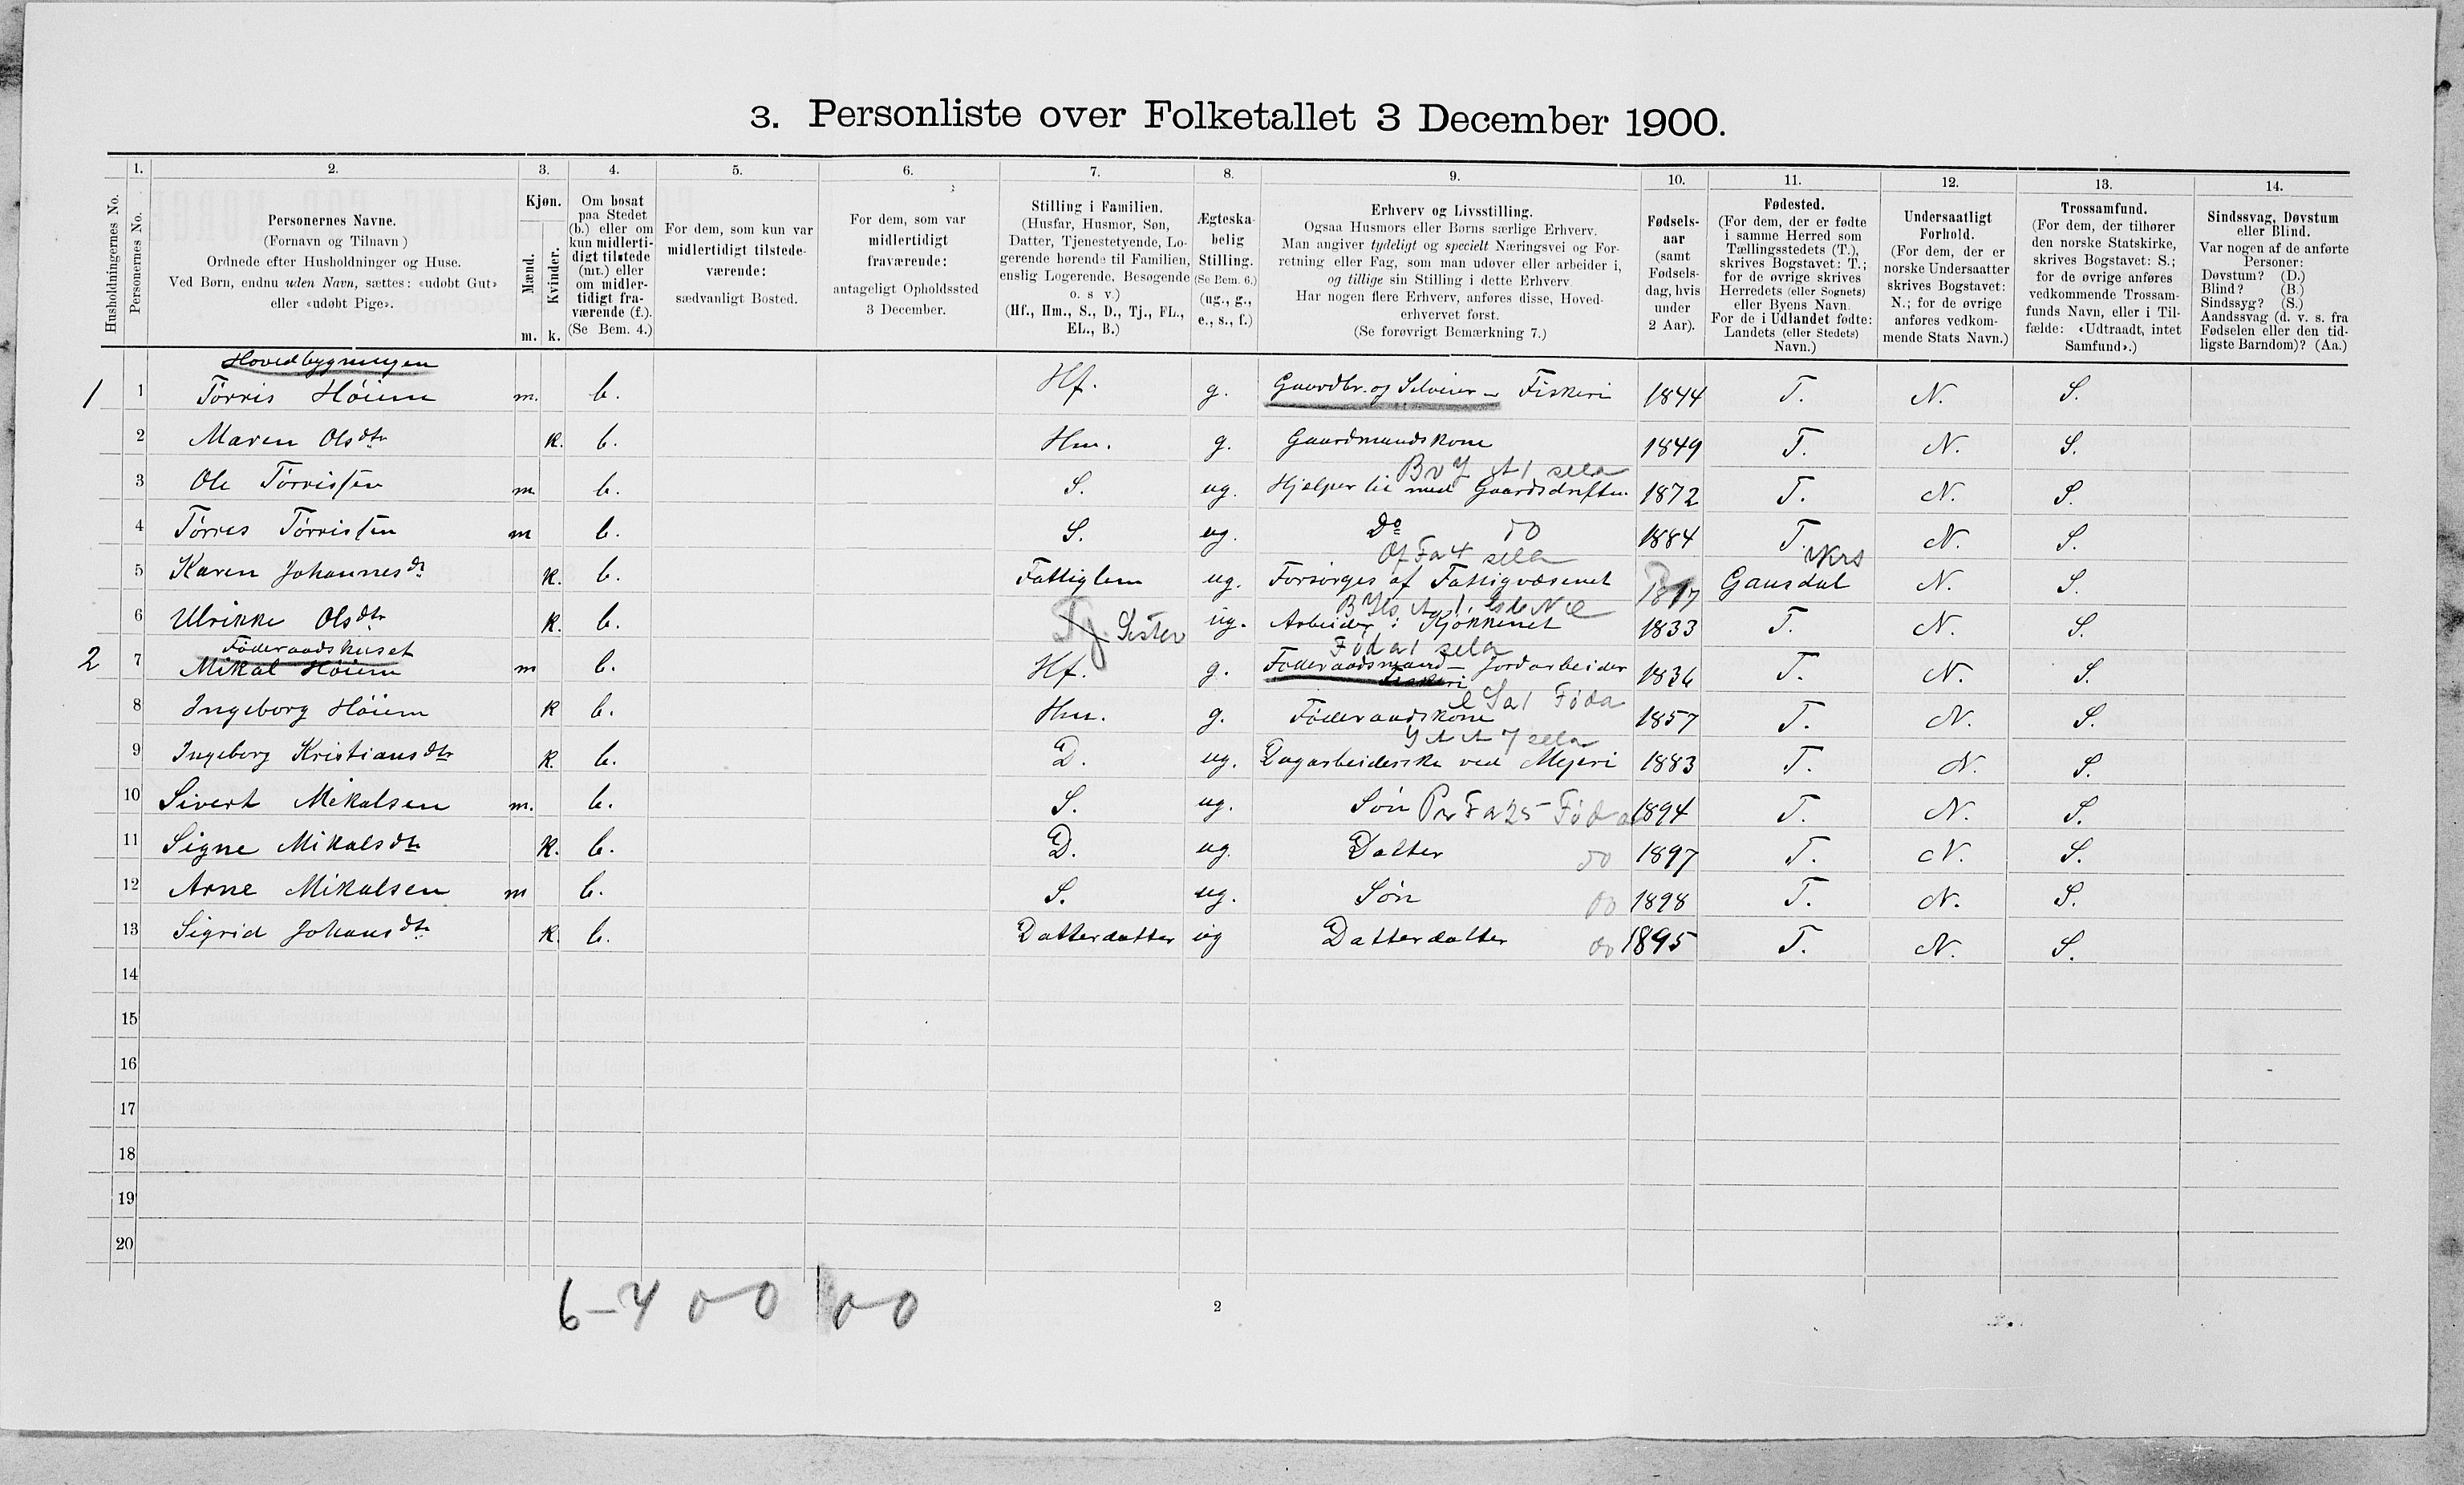 3. Personliste over Folketallet 3 December 1900.
1. 2. 3. 4. 5. 6. 7. 8. 9. 10. 11. 12. 13. 14.
Husholdningernes No.
Personernes No.
Personernes Navne.
(Fornavn og Tilnavn)
Ordnede efter Husholdninger og Huse.
Ved Børn, endnu uden Navn, sættes: «udøbt Gut»
eller «udøbt Pige».
Kjøn.
Mænd.
Kvinder.
m. k.
Om bosat
paa Stedet
(b.) eller om
kun midlerti-
digt tilstede
(mt.) eller
om midler-
tidigt fra-
værende (f.).
(Se Bem. 4.)
For dem, som kun var
midlertidigt tilstede-
værende:
sædvanligt Bosted.
For dem, som var
midlertidigt
fraværende:
antageligt Opholdssted
3 December.
Stilling i Familien.
(Husfar, Husmor, Søn,
Datter, Tjenestetyende, Lo-
gerende hørende til Familien,
enslig Logerende, Besøgende
o. s v.)
(Hf., Hm., S., D., Tj., FL.,
EL., B.)
Ægteska-
belig
Stilling.
(Se Bem. 6.)
(ug., g.,
e., s., f.)
Erhverv og Livsstilling.
Ogsaa Husmors eller Børns særlige Erhverv.
Man angiver tydeligt og specielt Næringsvei og For-
retning eller Fag, som man udøver eller arbeider i,
og tillige sin Stilling i dette Erhverv
Har nogen flere Erhverv, anføres disse, Hoved-
erhvervet først.
(Se forøvrigt Bemærkning 7.)
Fødsels-
aar
(samt
Fødsels-
dag, hvis
under
2 Aar).
Fødested.
(For dem, der er fødte
i samme Herred som
Tællingsstedets (T.),
skrives Bogstavet: T.;
for de øvrige skrives
Herredets (eller Sognets)
eller Byens Navn
For de i Udlandet fødte:
Landets (eller Stedets)
Navn.)
Undersaatligt
Forhold.
(For dem, der er
norske Undersaatter
skrives Bogstavet:
N.; for de øvrige
anføres vedkom-
mende Stats Navn.)
Trossamfund.
(For dem, der tilhører
den norske Statskirke,
skrives Bogstavet: S.;
for de øvrige anføres
vedkommende Trossam-
funds Navn, eller i Til-
fælde: «Udtraadt, intet
Samfund».)
Sindssvag, Døvstum
eller Blind.
Var nogen af de anførte
Personer:
Døvstum? (D.)
Blind? (B.)
Sindssyg? (S.)
Aandssvag (d. v. s. fra
Fødselen eller den tid-
ligste Barndom)? (Aa.)
Hovedbygningen
1 1 Tørris Høium m. b. Hf. g. Gaardbr. og Selveier - Fiskeri 1844 T. N. S.
2 Maren Olsdtr k. b. Hm. g. Gaardmandskone 1849 T. N. S.
3 Ole Tørrissen m b. S. ug. Hjælper til med Gaardsdriften 1872 T. N. S.
4 Tørres Tørrissen m b. S. ug. Do do 1884 T. N. S.
5 Karen Johannesdr k. b. Fattiglem ug. Forsørges af Fattigvæsenet 1817 Gausdal N. S.
6 Ulrikke Olsdtr k. b. Tj. Søster ug. Arbeider i Kjøkkenet 1833 T. N. S.
Føderaadshuset
2 7 Mikal Høium m b. Hf. g. Føderaadsmand - Jordarbeider 1836 T. N. S.
Fiskeri
8 Ingeborg Høium k b. Hm. g. Føderaadskone 1857 T. N. S.
9 Ingeborg Kristiansdtr k. b. D. ug. Dagarbeiderske ved Mejeri 1883 T. N. S.
10 Sivert Mikalsen m. b. S. ug. Søn 1894 T. N. S.
11 Signe Mikalsdtr k. b. D. ug. Datter do 1897 T. N. S.
12 Arne Mikalsen m b. S. ug. Søn do 1898 T. N. S.
13 Sigrid Johansdtr k. b. Datterdatter ug Datterdatter do 1895 T. N. S.
14
15
16
17
18
19
20
6-4 0-0 00
2